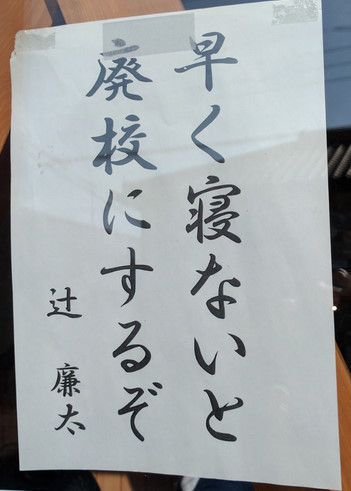 早く寝ないと
廃校にするぞ
辻 廉太